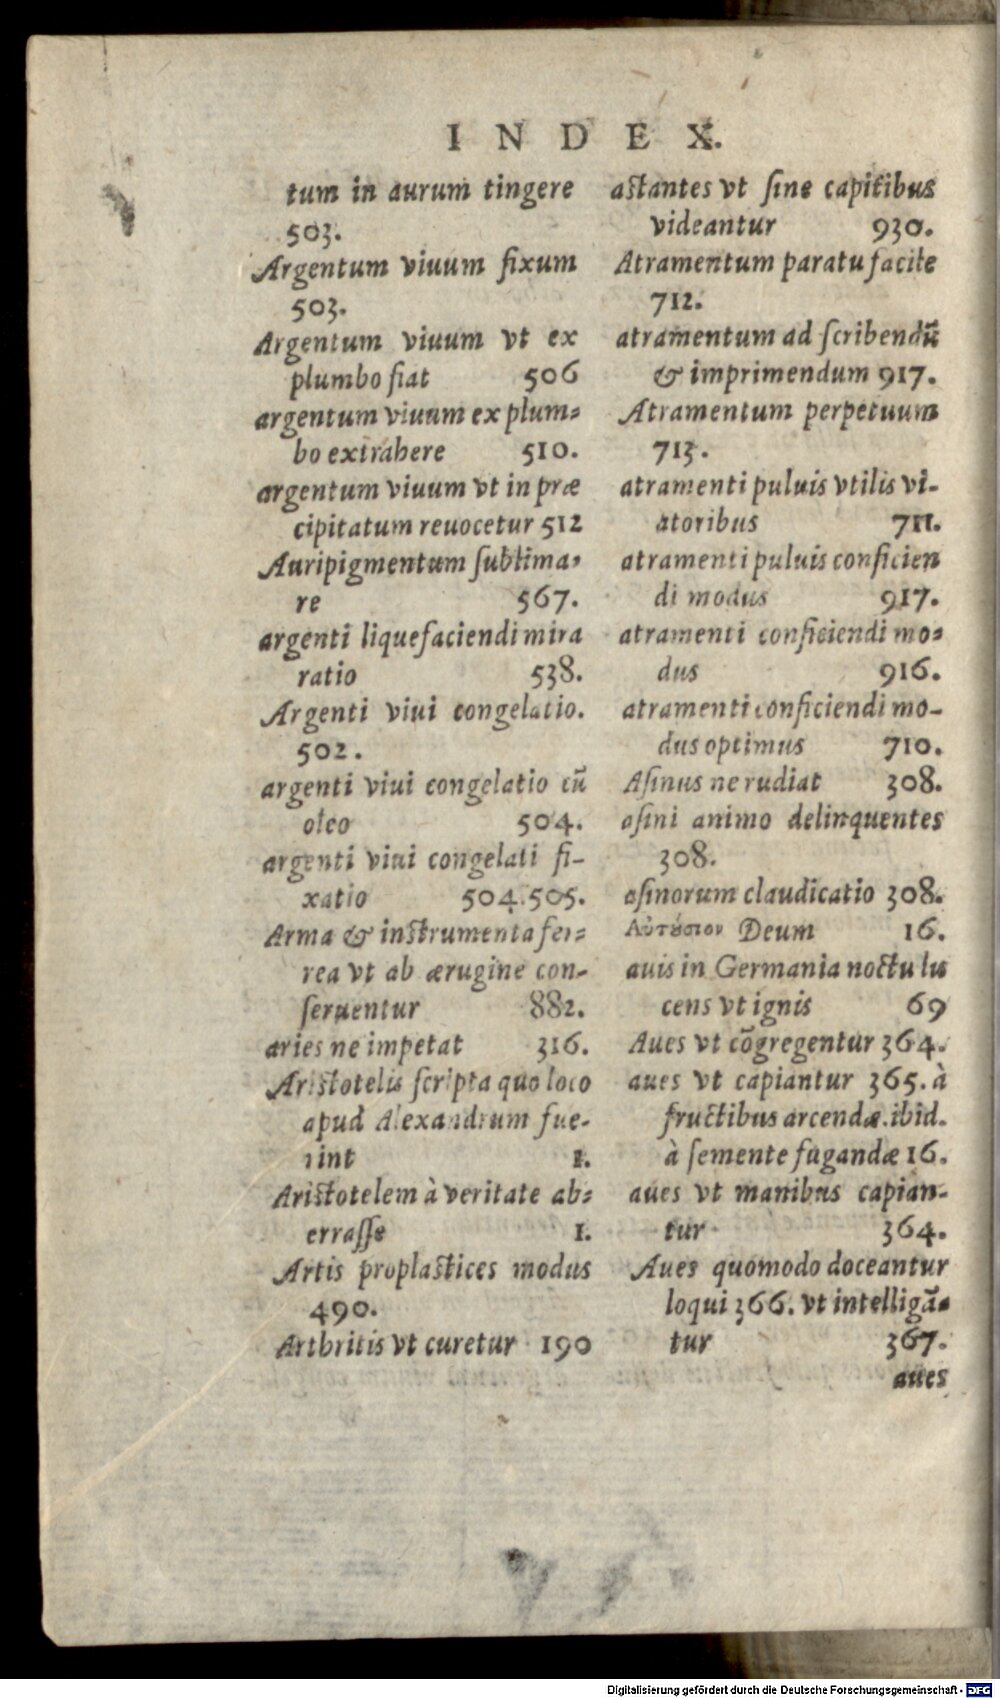 INDEX.
tum in aurum tingere
503.
Argentum viuum fixum
503.
Argentum viuum vt ex
plumbo fiat 506
argentum viuum ex plum=
bo extrahere 510.
argentum viuum vt in præ
cipitatum reuocetur 512
Auripigmentum sublima=
re 567.
argenti liquefaciendi mira
ratio 538.
Argenti viui congelatio.
502.
argenti viui congelatio cū
oleo 504.
argenti viui congelati fi-
xatio 504.505.
Arma & instrumenta fer=
rea vt ab ærugine con-
seruentur 882.
aries ne impetat 316.
Aristotelis scripta quo loco
apud Alexandrum fue-
rint 1.
Aristotelem à veritate ab=
errasse 1.
Artis proplastices modus
490.
Arthritis vt curetur 190
astantes vt sine capitibus
videantur 930.
Atramentum paratu facile
712.
atramentum ad scribendū
& imprimendum 917.
Atramentum perpetuum
713.
atramenti puluis vtilis vi-
atoribus 711.
atramenti puluis conficien
di modus 917.
atramenti conficiendi mo=
dus 916.
atramenti conficiendi mo-
dus optimus 710.
Asinus ne rudiat 308.
asini animo delinquentes
308.
asinorum claudicatio 308.
Αὐτύσιον Deum 16.
auis in Germania noctu lu
cens vt ignis 69
Aues vt cōgregentur 364.
aues vt capiantur 365. à
fructibus arcendæ. ibid.
à semente fugandæ 16.
aues vt manibus capian-
tur 364.
Aues quomodo doceantur
loqui 366. vt intelligā=
tur 367.
aues
Digitalisierung gefördert durch die Deutsche Forschungsgemeinschaft - DFG